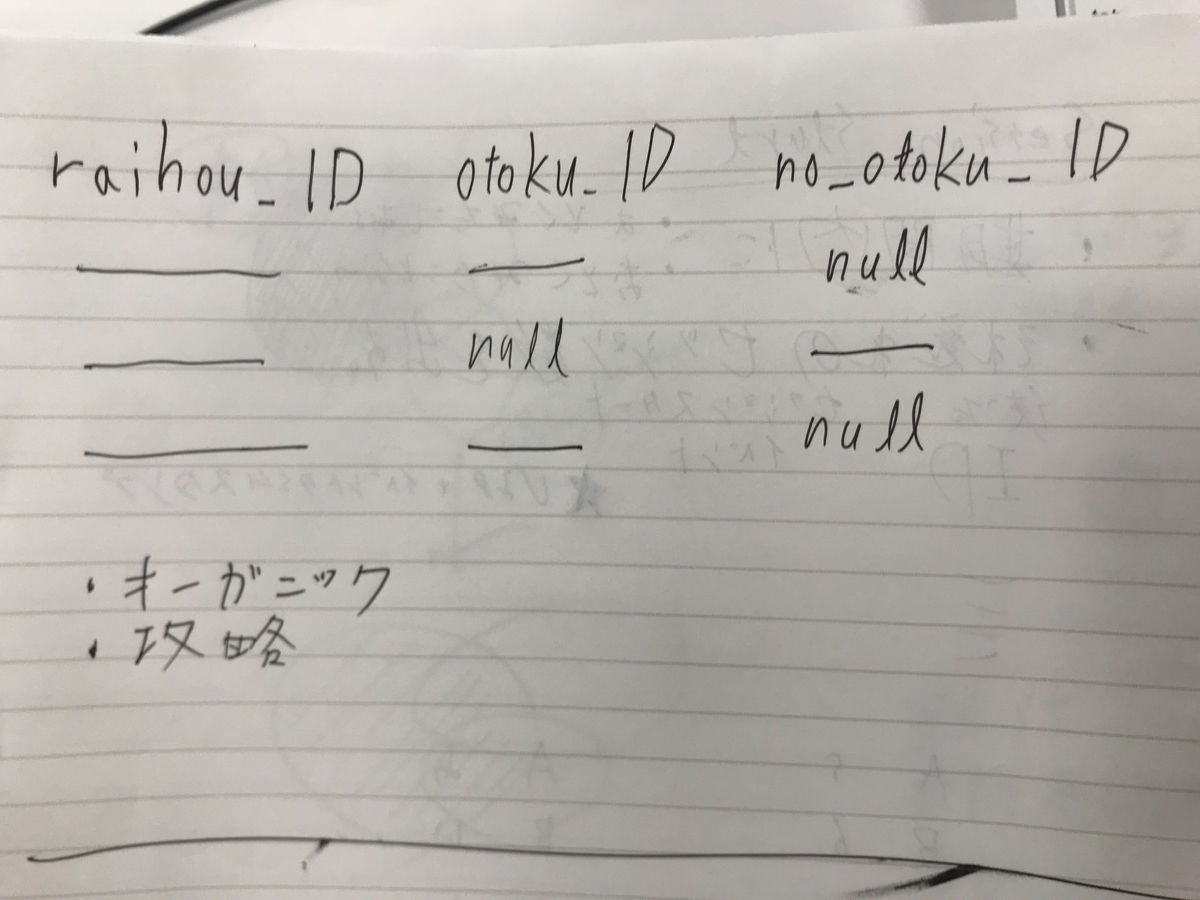 raihou_ID otoku_ID no_otoku_ID
null
null
null
・オーガニック
・攻略